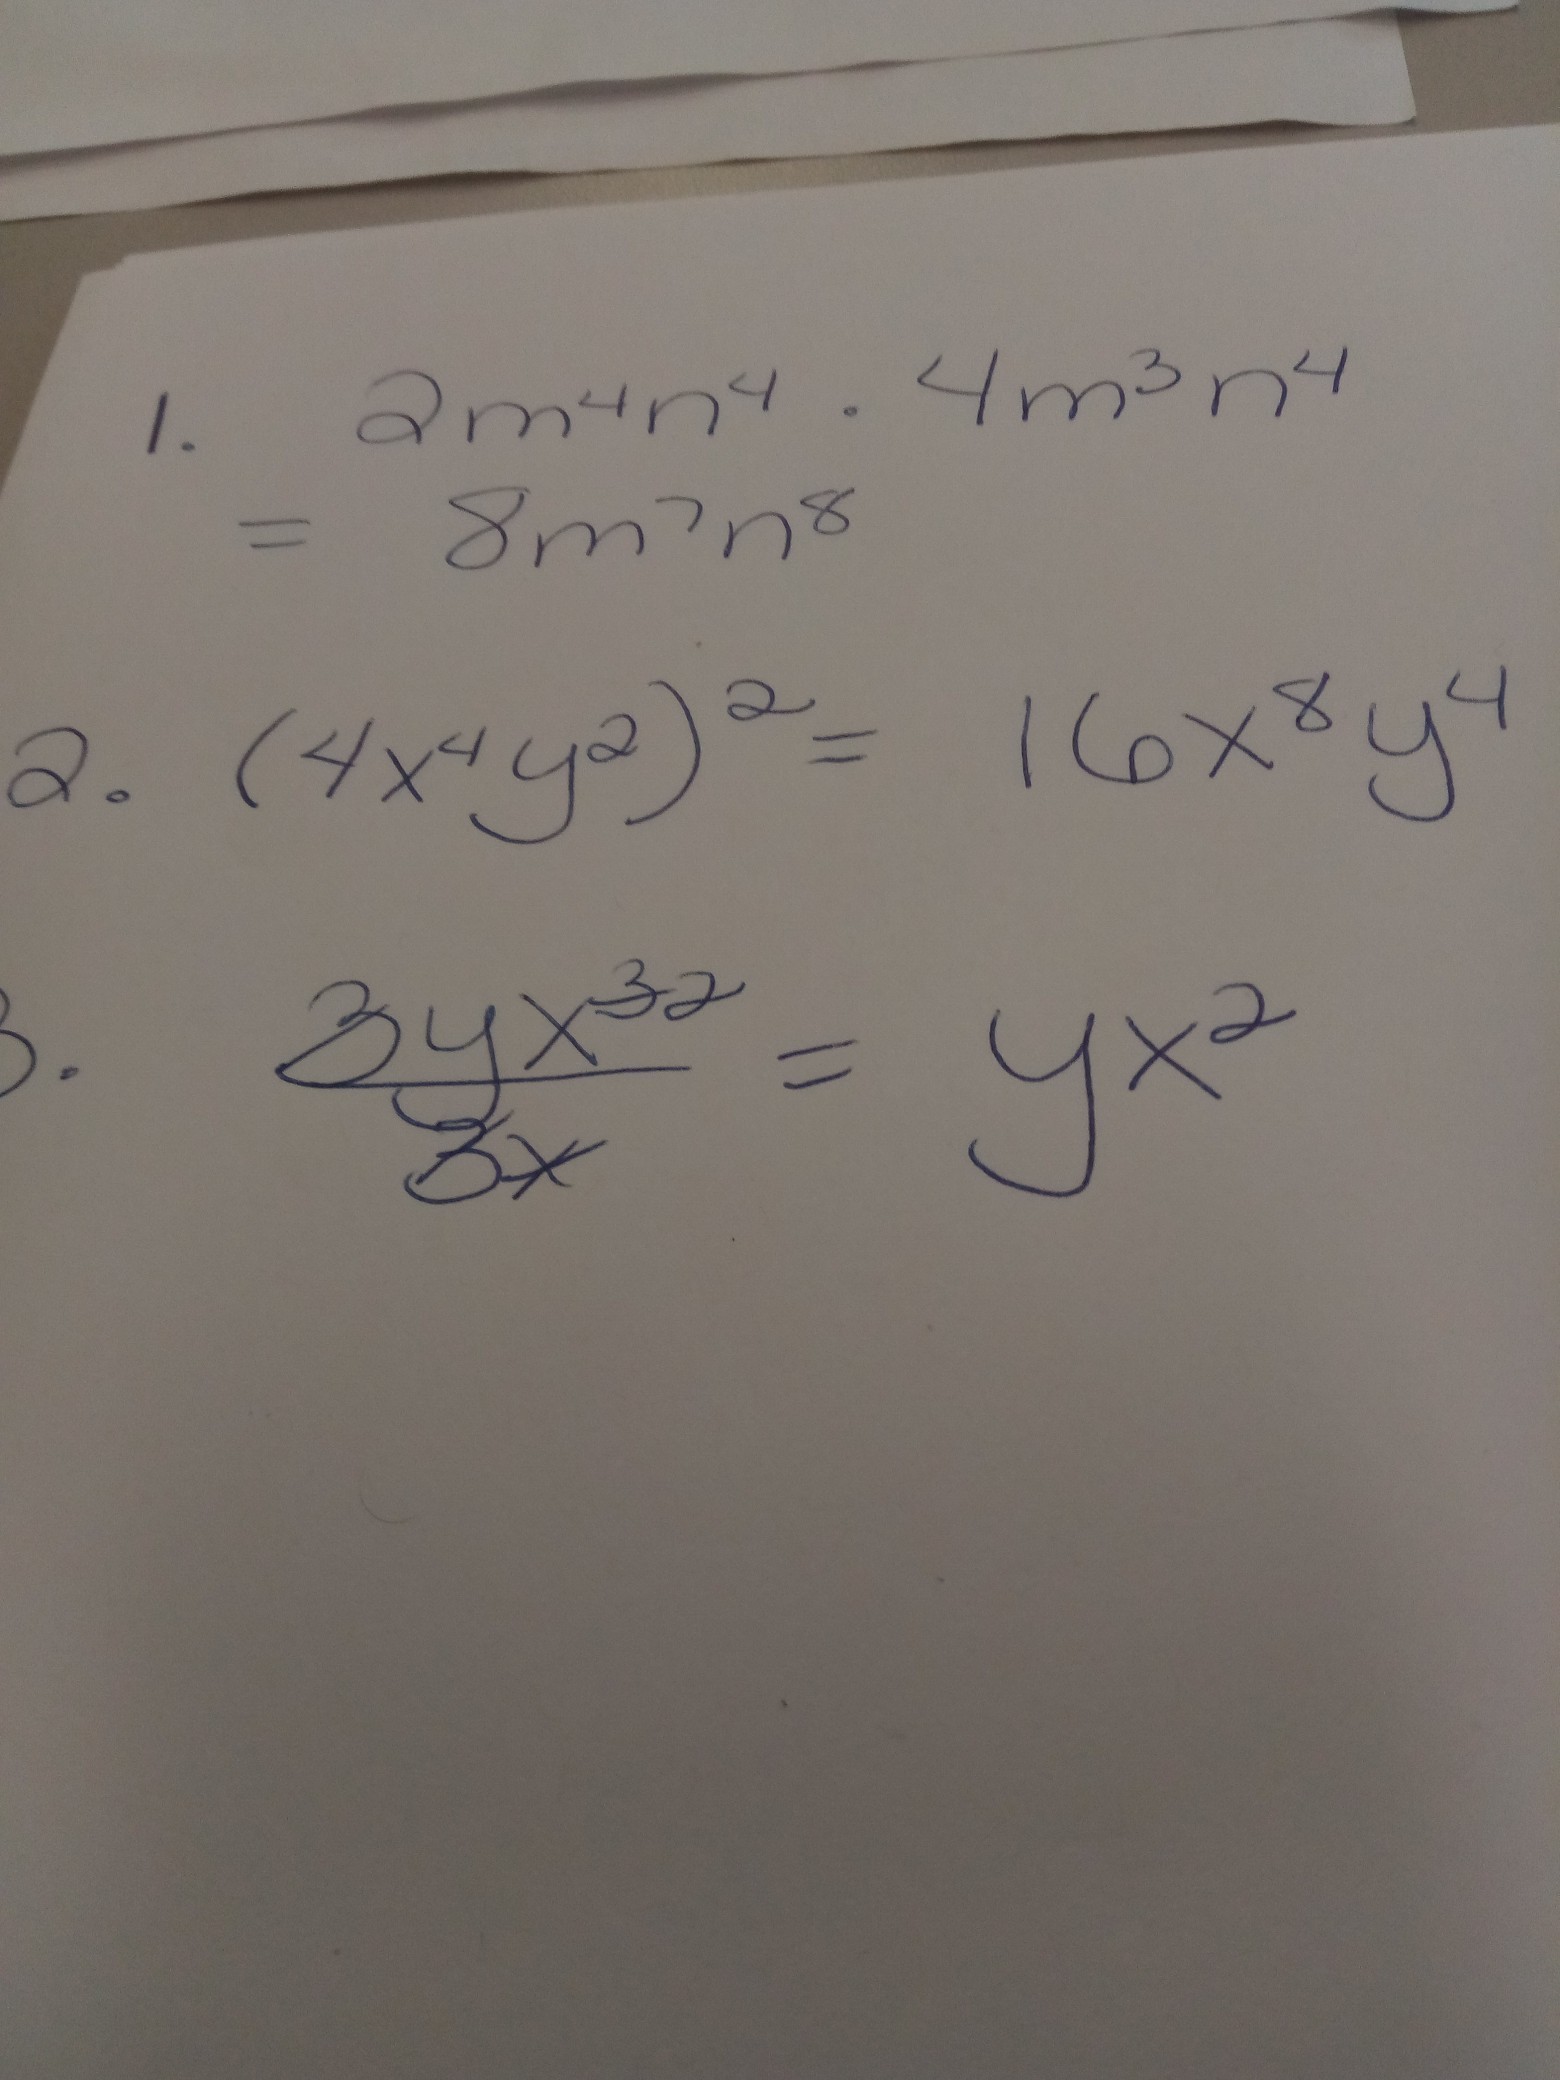 1. 2m⁴n⁴ · 4m³n⁴
= 8m⁷n⁸
2. (4x⁴y²)² = 16x⁸y⁴
3. 3yx³² / 3x = yx²